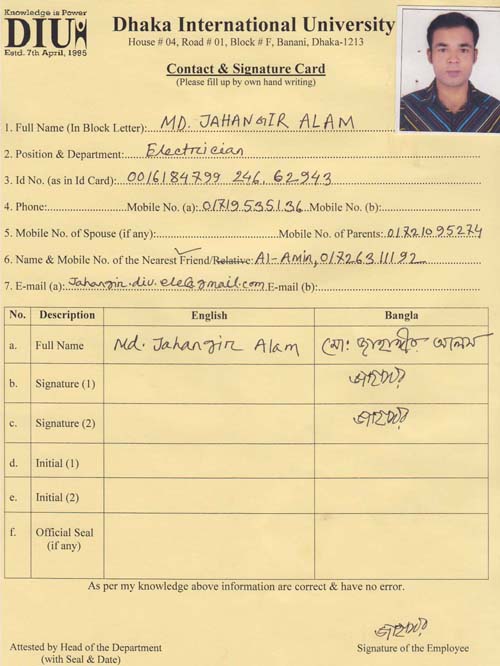 Knowledge is Power
DIU
Estd. 7th April, 1995
Dhaka International University
House # 04, Road # 01, Block # F, Banani, Dhaka-1213
Contact & Signature Card
(Please fill up by own hand writing)
1. Full Name (In Block Letter): MD. JAHANGIR ALAM
2. Position & Department: Electrician
3. Id No. (as in Id Card): 0016184799 246, 62943
4. Phone: Mobile No. (a): 01719535136 Mobile No. (b):
5. Mobile No. of Spouse (if any): Mobile No. of Parents: 01721095274
6. Name & Mobile No. of the Nearest Friend/Relative: Al-Amin, 01726311192
7. E-mail (a): Jahangir.diu.ele@gmail.com E-mail (b):
No. Description English Bangla
a. Full Name Md. Jahangir Alam মো: জাহাঙ্গীর আলম
b. Signature (1) জাহাঙ্গীর
c. Signature (2) জাহাঙ্গীর
d. Initial (1)
e. Initial (2)
f. Official Seal
(if any)
As per my knowledge above information are correct & have no error.
জাহাঙ্গীর
Attested by Head of the Department Signature of the Employee
(with Seal & Date)